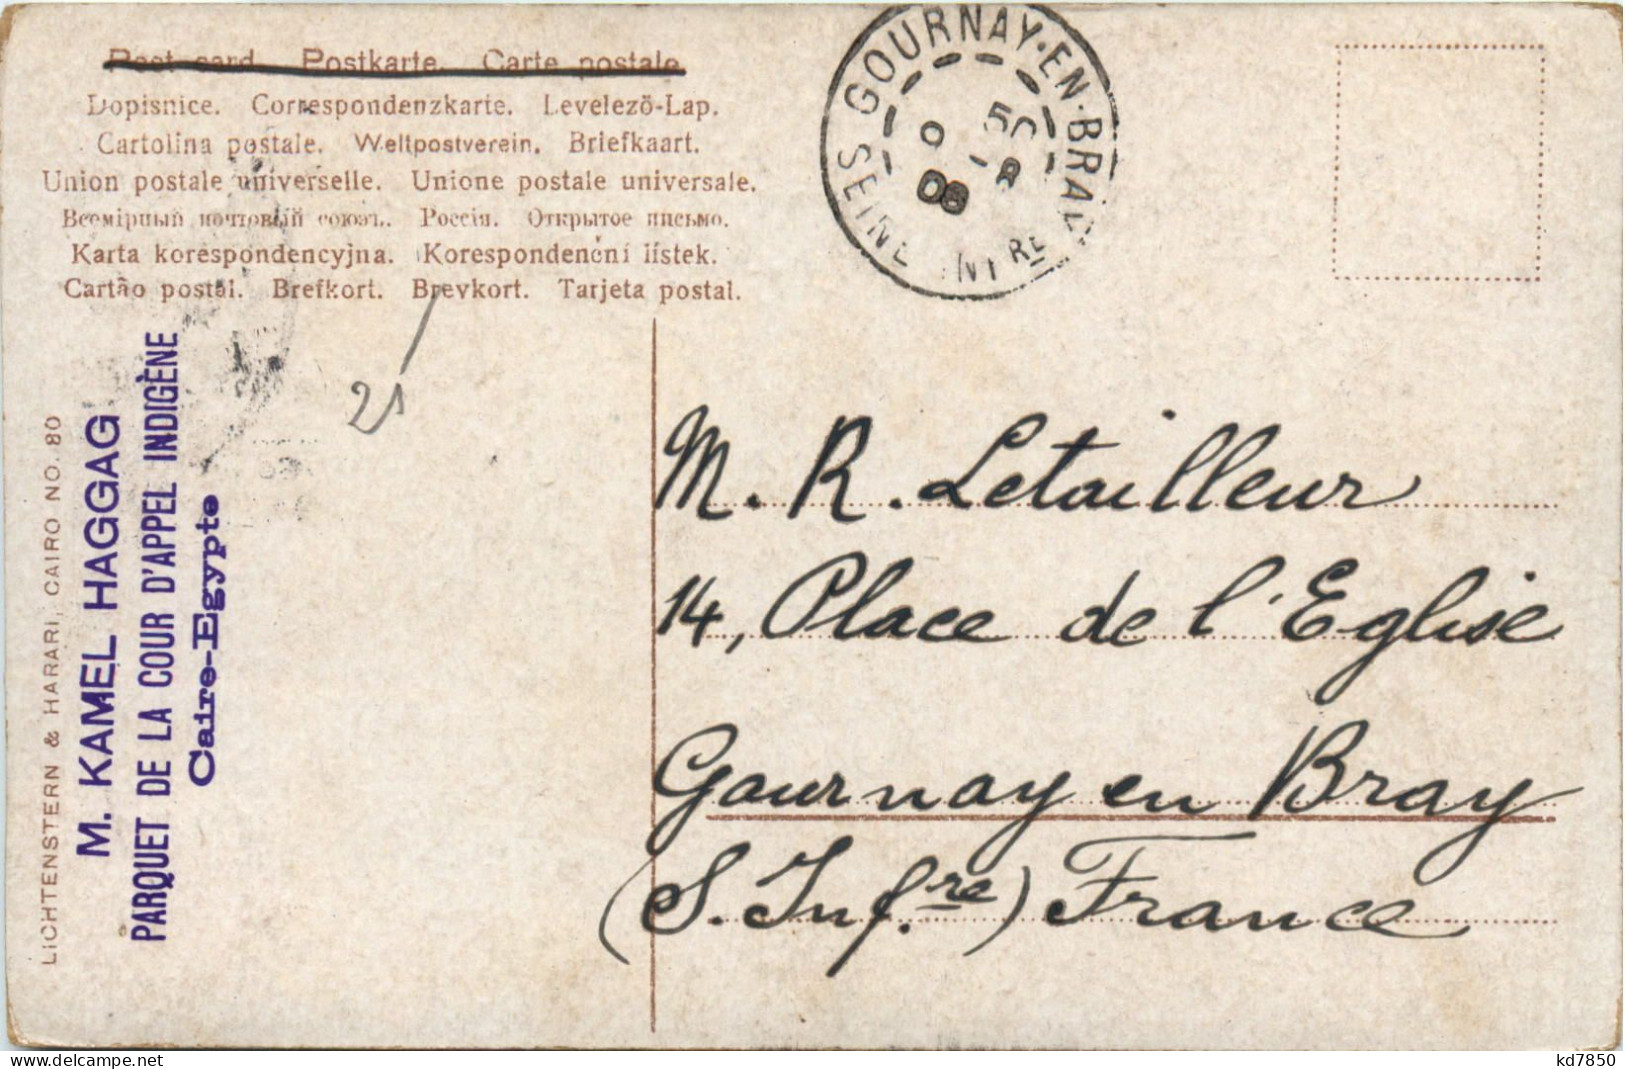 Post card. Postkarte. Carte postale.
Dopisnice. Correspondenzkarte. Levelező-Lap.
Cartolina postale. Weltpostverein. Briefkaart.
Union postale universelle. Unione postale universale.
Всемірный почтовый союзъ. Россія. Открытое письмо.
Karta korespondencyjna. Korespondenční lístek.
Cartão postal. Brefkort. Brevkort. Tarjeta postal.
GOURNAY-EN-BRAY
SEINE INFRE
08
21
LICHTENSTERN & HARARI, CAIRO NO. 80
M. KAMEL HAGGAG
PARQUET DE LA COUR D'APPEL INDIGÈNE
Caire-Egypte
M. R. Letailleur
14, Place de l'Eglise
Gournay en Bray
(S. Inf.re) France
kd7850